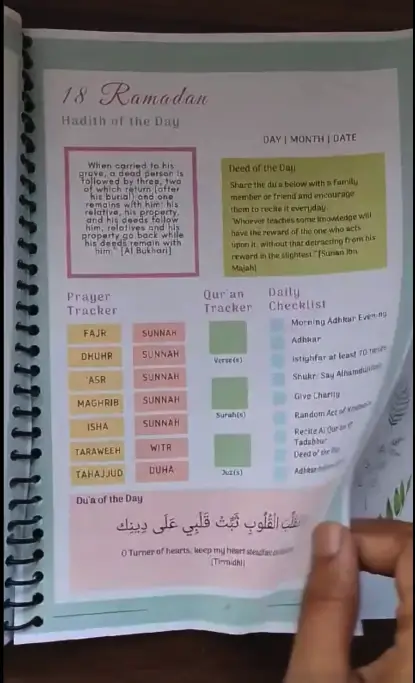 18 Ramadan
Hadith of the Day
DAY | MONTH | DATE
When carried to his
grave, a dead person is
followed by three, two
of which return (after
his burial) and one
remains with him: his
relative, his property,
and his deeds follow
him, relatives and his
property go back while
his deeds remain with
him." [Al Bukhari]
Deed of the Day
Share the du'a below with a family
member or friend and encourage
them to recite it everyday.
"Whoever teaches some knowledge will
have the reward of the one who acts
upon it, without that detracting from his
reward in the slightest." [Sunan Ibn
Majah]
Prayer
Tracker
FAJR SUNNAH
DHUHR SUNNAH
'ASR SUNNAH
MAGHRIB SUNNAH
ISHA SUNNAH
TARAWEEH WITR
TAHAJJUD DUHA
Qur'an
Tracker
Verse(s)
Surah(s)
Juz(s)
Daily
Checklist
Morning Adhkar Evening
Adhkar
Istighfar at least 70 times
Shukr: Say Alhamdulillah
Give Charity
Random Act of Kindness
Recite Al Qur'an
Tadabbur
Deed of the Day
Adhkar
Du'a of the Day
القُلُوبِ ثَبِّتْ قَلْبِي عَلَى دِينِكَ
O Turner of hearts, keep my heart steadfast
(Tirmidhi)